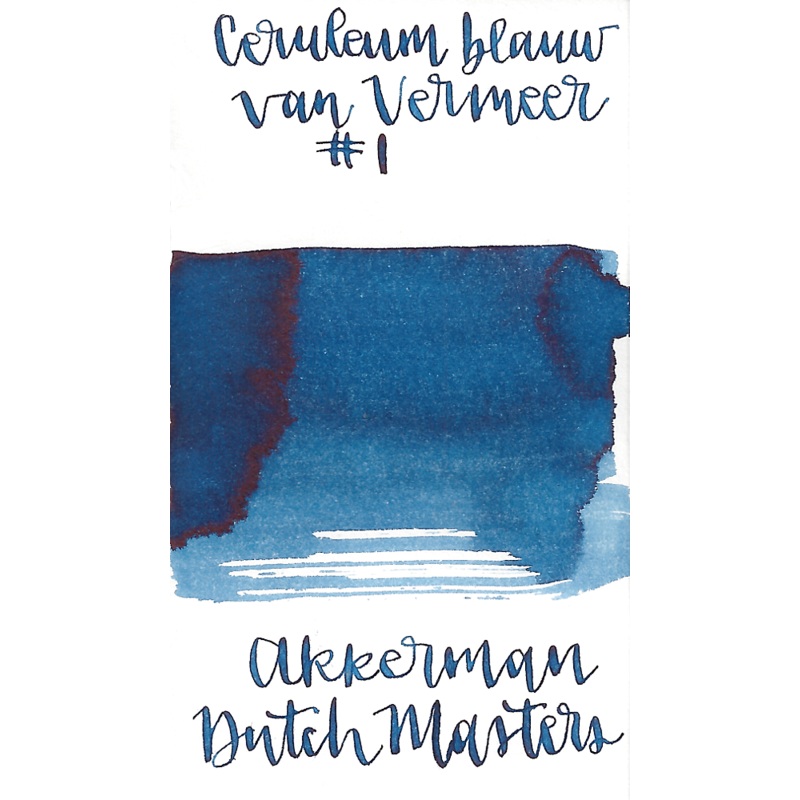 Ceruleum blauw
van Vermeer
#1
Akkerman
Dutch Masters